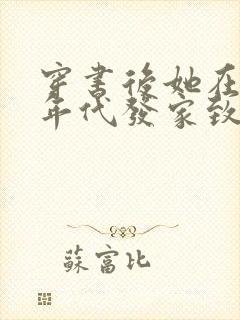 穿書後她在
年代發家致
蘇富比